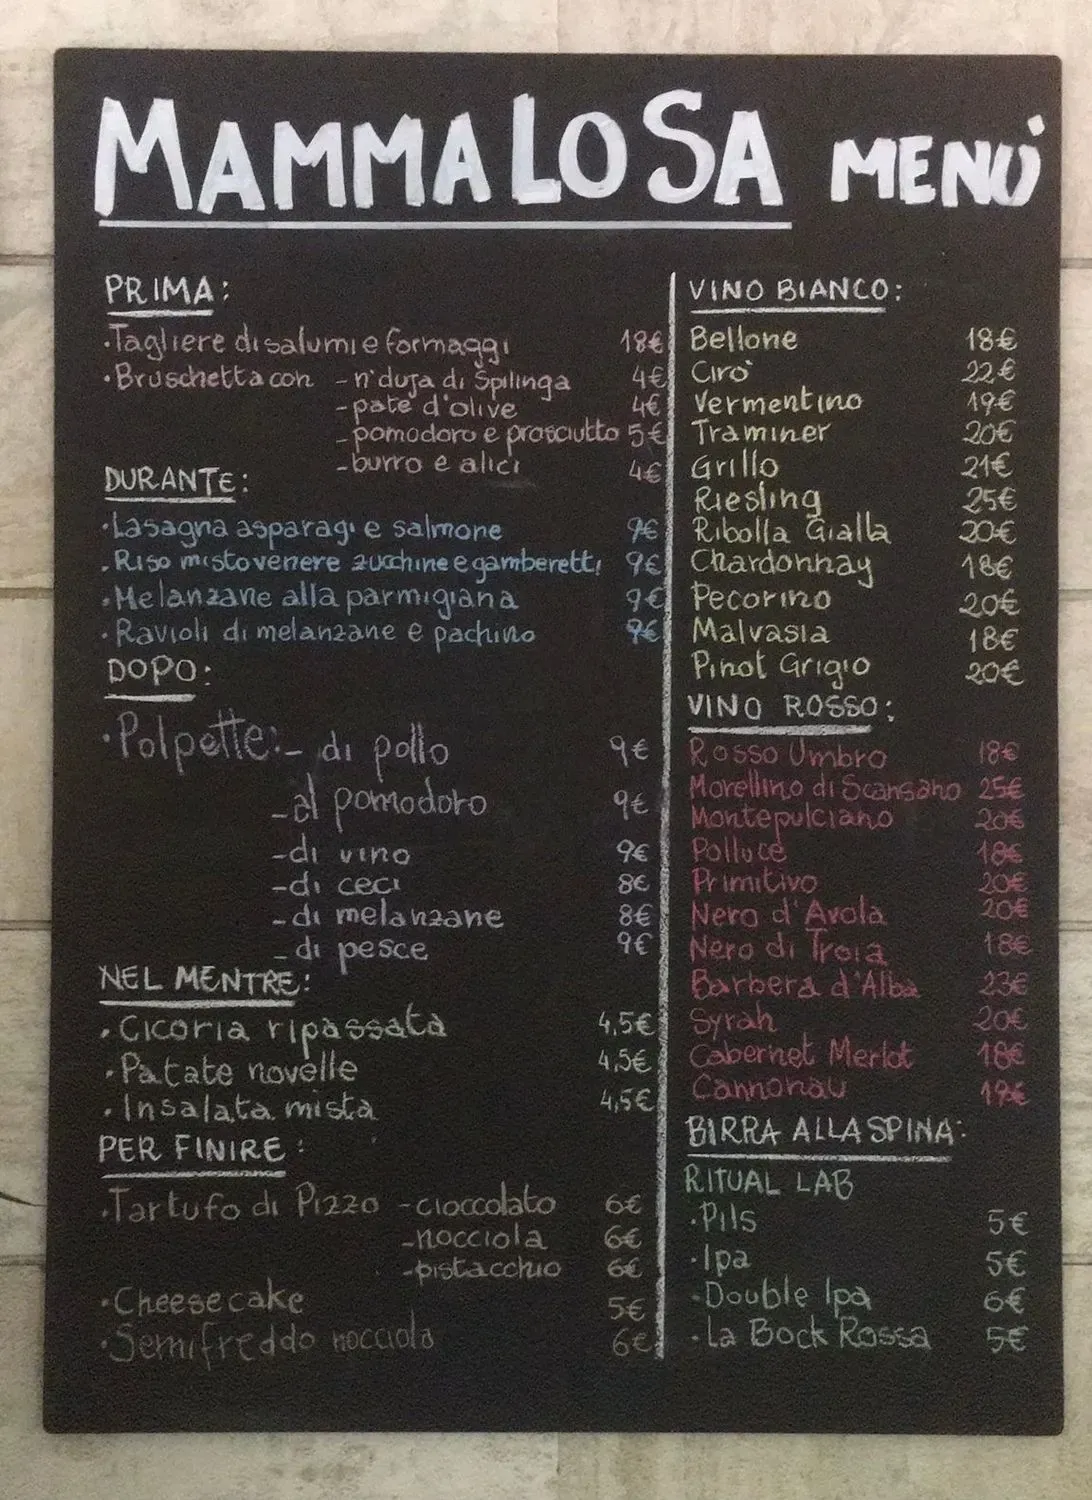 MAMMA LO SA MENÚ
PRIMA:
·Tagliere di salumi e formaggi 18€
·Bruschetta con -n'duja di Spilinga 4€
-pate d'olive 4€
-pomodoro e prosciutto 5€
-burro e alici 4€
DURANTE:
·Lasagna asparagi e salmone 9€
·Riso misto venere zucchine e gamberetti 9€
·Melanzane alla parmigiana 9€
·Ravioli di melanzane e pachino 9€
DOPO:
·Polpette:- di pollo 9€
-al pomodoro 9€
-di vino 9€
-di ceci 8€
-di melanzane 8€
-di pesce 9€
NEL MENTRE:
·Cicoria ripassata 4,5€
·Patate novelle 4,5€
·Insalata mista 4,5€
PER FINIRE:
·Tartufo di Pizzo -cioccolato 6€
-nocciola 6€
-pistacchio 6€
·Cheesecake 5€
·Semifreddo nocciola 6€
VINO BIANCO:
Bellone 18€
Cirò 22€
Vermentino 19€
Traminer 20€
Grillo 21€
Riesling 25€
Ribolla Gialla 20€
Chardonnay 18€
Pecorino 20€
Malvasia 18€
Pinot Grigio 20€
VINO ROSSO:
Rosso Umbro 18€
Morellino di Scansano 25€
Montepulciano 20€
Polluce 18€
Primitivo 20€
Nero d'Avola 20€
Nero di Troia 18€
Barbera d'Alba 23€
Syrah 20€
Cabernet Merlot 18€
Cannonau 19€
BIRRA ALLA SPINA:
RITUAL LAB
·Pils 5€
·Ipa 5€
·Double Ipa 6€
·La Bock Rossa 5€